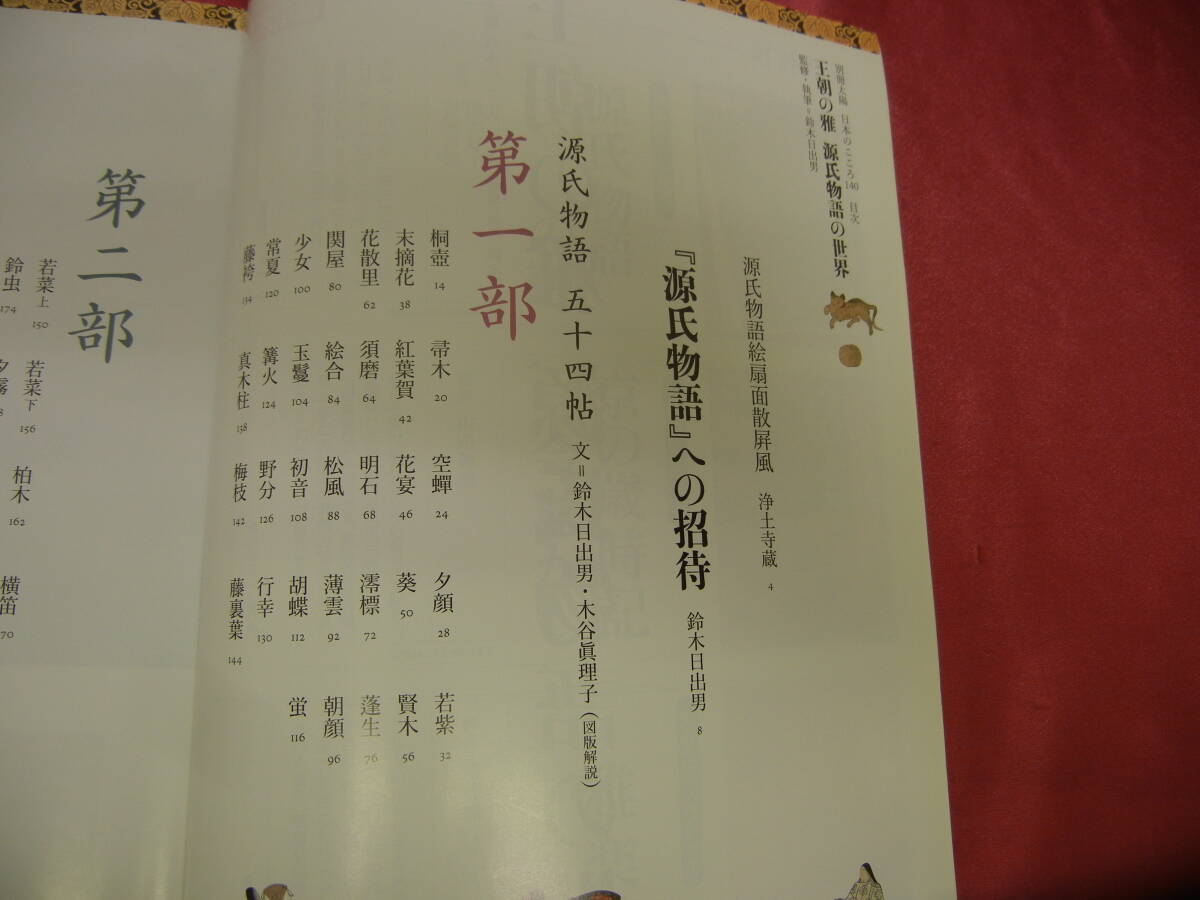 別冊太陽 日本のこころ140 目次
王朝の雅 源氏物語の世界
監修・執筆=鈴木日出男
源氏物語絵扇面散屛風 浄土寺蔵 4
『源氏物語』への招待 鈴木日出男 8
源氏物語 五十四帖 文=鈴木日出男・木谷眞理子(図版解説)
第一部
桐壺 14 帚木 20 空蟬 24 夕顔 28 若紫 32
末摘花 38 紅葉賀 42 花宴 46 葵 50 賢木 56
花散里 62 須磨 64 明石 68 澪標 72 蓬生 76
関屋 80 絵合 84 松風 88 薄雲 92 朝顔 96
少女 100 玉鬘 104 初音 108 胡蝶 112 蛍 116
常夏 120 篝火 124 野分 126 行幸 130
藤袴 134 真木柱 138 梅枝 142 藤裏葉 144
第二部
若菜上 150 若菜下 156 柏木 162 横笛
鈴虫 174 夕霧